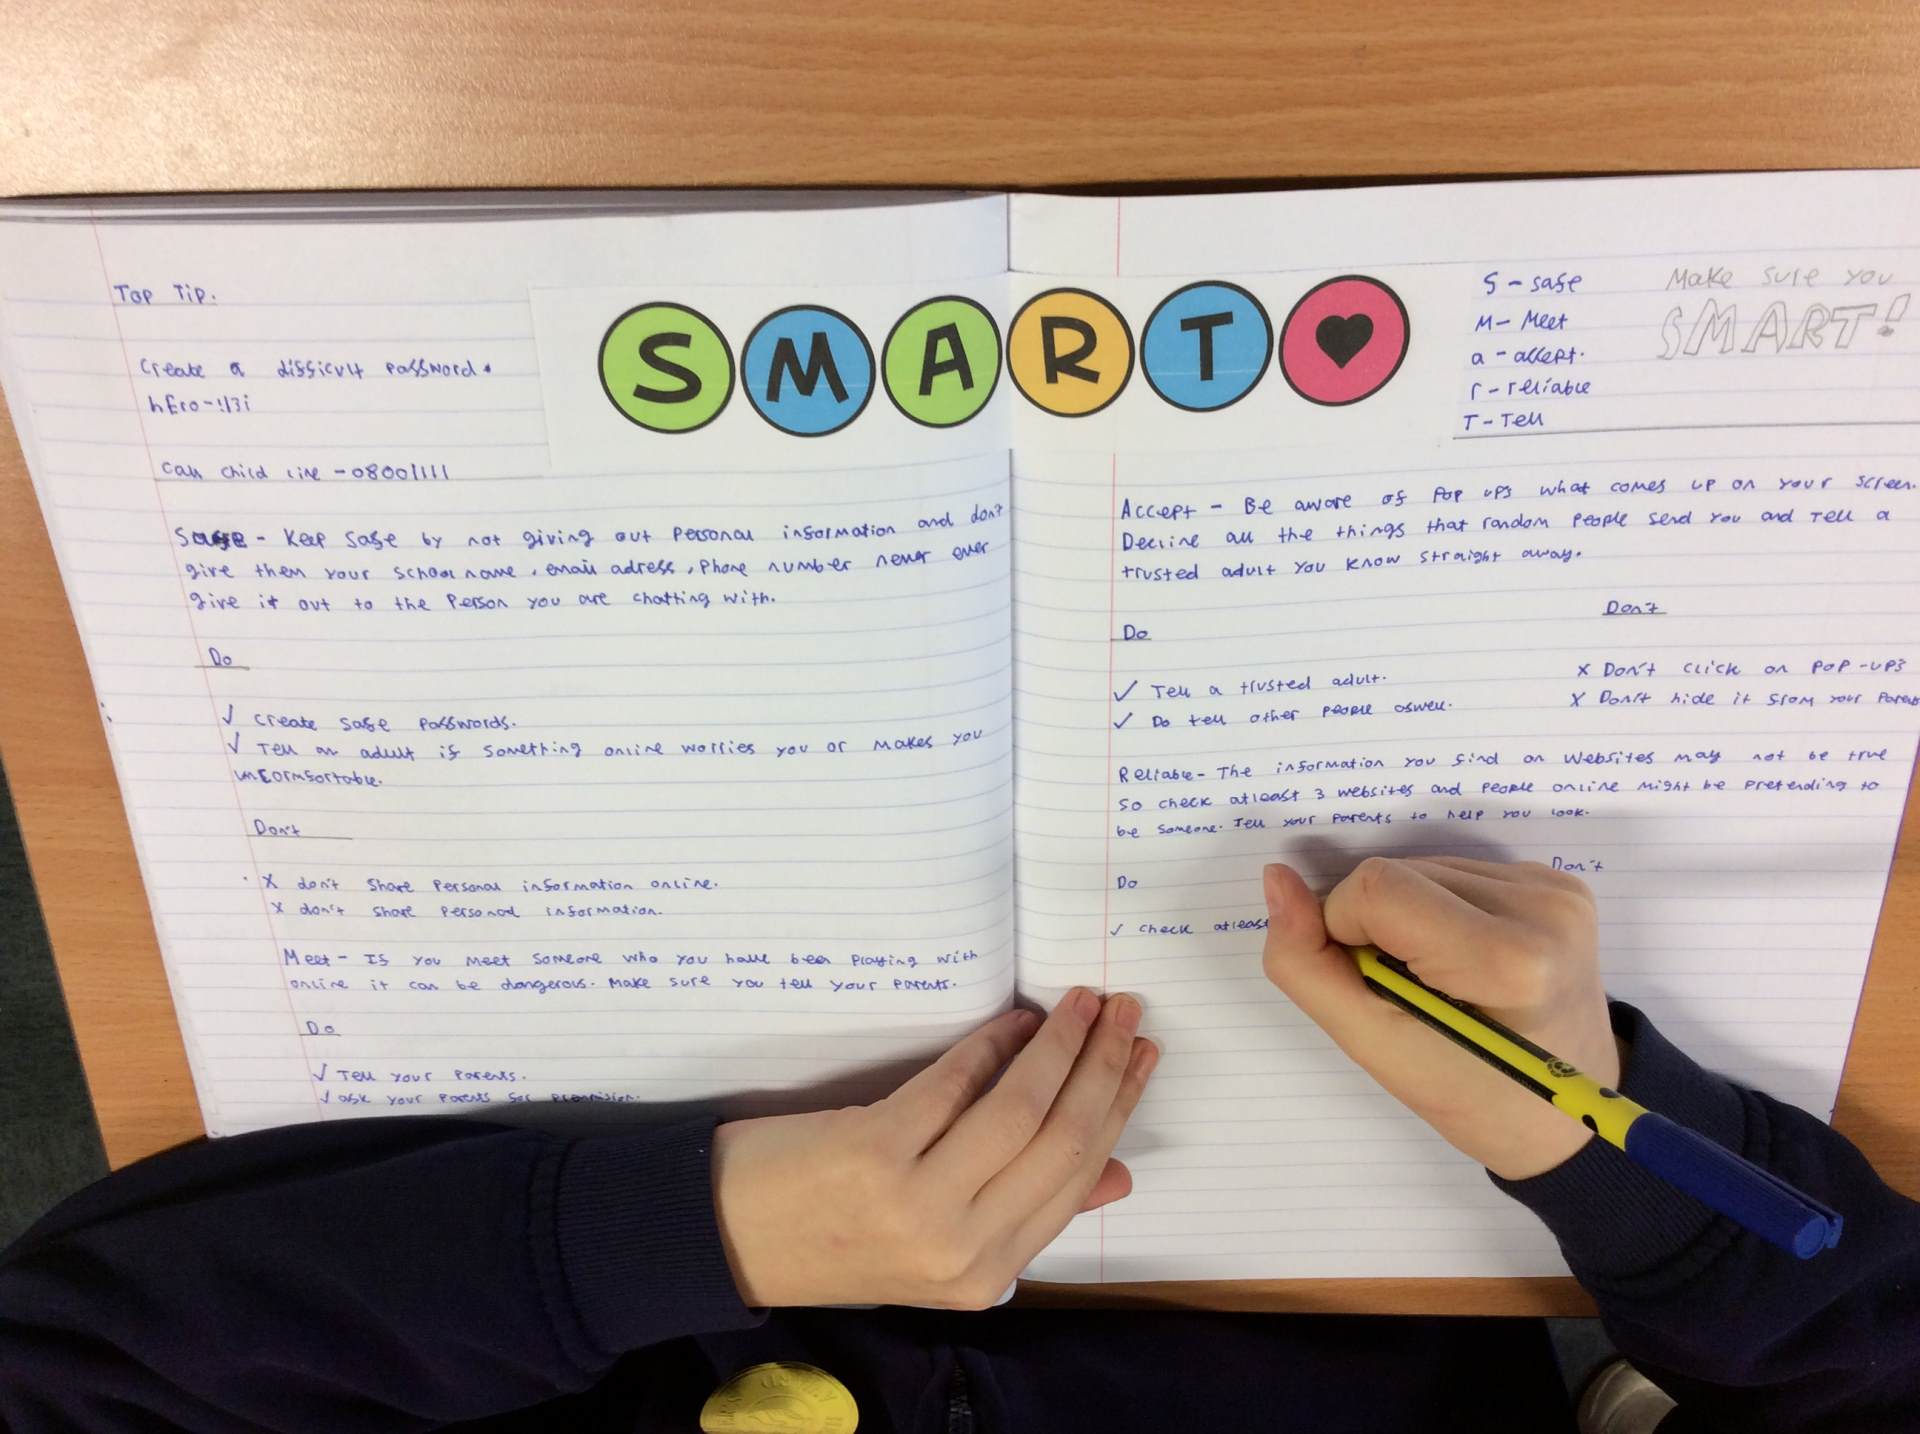 Top Tip.
Create a difficult password.
hEro-!13i
Call child line - 08001111
Safe - Keep safe by not giving out personal information and don't
give them your school name, email adress, phone number never ever
give it out to the person you are chatting with.
Do
✓ Create safe passwords.
✓ Tell an adult if something online worries you or makes you
uncormfortable.
Don't
X don't share personal information online.
X don't share personal information.
Meet - If you meet someone who you have been playing with
online it can be dangerous. Make sure you tell your parents.
Do
✓ Tell your parents.
✓ ask your parents for
SMART
S - safe
M - Meet
a - accept.
r - reliable
T - Tell
Make sure you
SMART!
Accept - Be aware of pop ups what comes up on your screen.
Decline all the things that random people send you and tell a
trusted adult you know straight away.
Do
Don't
✓ Tell a trusted adult.
✓ Do tell other people aswell.
X Don't click on pop-ups
X Don't hide it from your parents
Reliable - The information you find on websites may not be true
so check atleast 3 websites and people online might be pretending to
be someone. Tell your parents to help you look.
Do
Don't
✓ check atleast